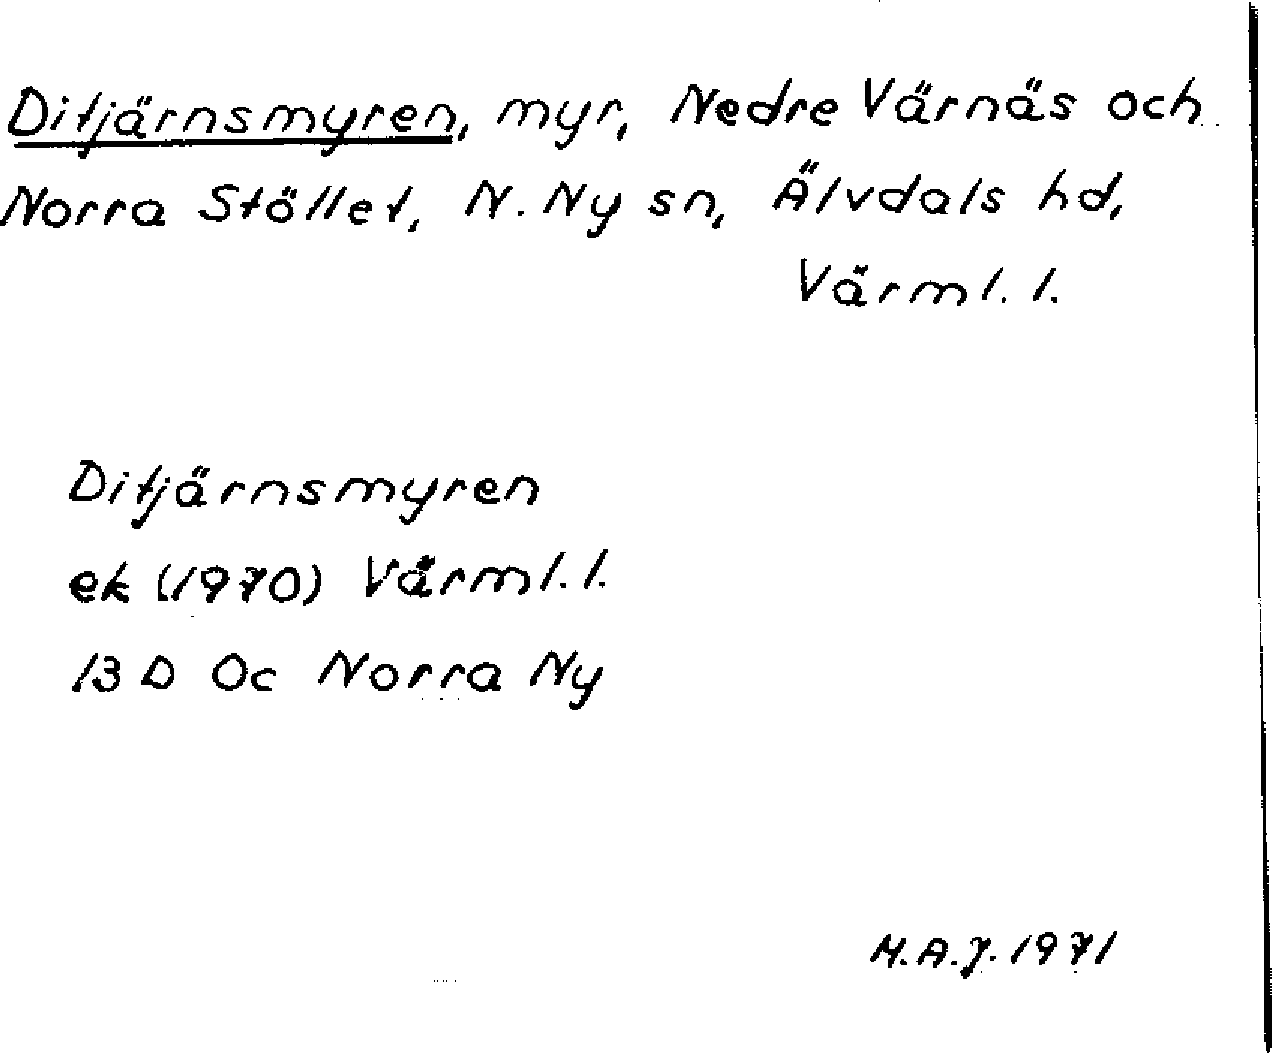 Ditjärnsmyren, myr, Nedre Värnäs och
Norra Stöllet, N. Ny sn, Älvdals hd,
Värml. l.
Ditjärnsmyren
ek (1970) Värml. l.
13 D Oc Norra Ny
H.A.J. 1971